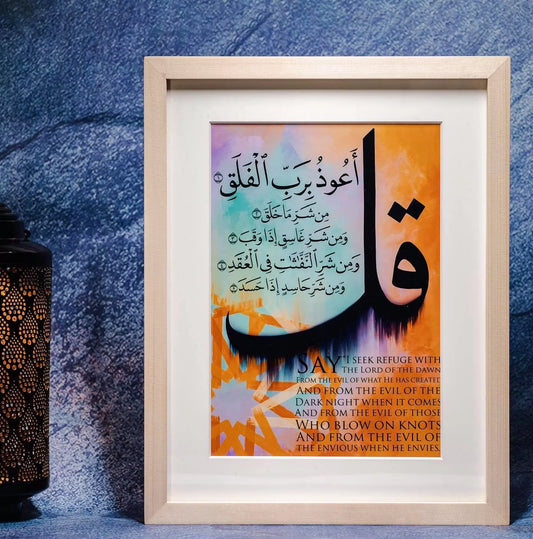 قل
أَعُوذُ بِرَبِّ ٱلْفَلَقِ ١
مِن شَرِّ مَا خَلَقَ ٢
وَمِن شَرِّ غَاسِقٍ إِذَا وَقَبَ ٣
وَمِن شَرِّ ٱلنَّفَّٰثَٰتِ فِى ٱلْعُقَدِ ٤
وَمِن شَرِّ حَاسِدٍ إِذَا حَسَدَ ٥
SAY "I SEEK REFUGE WITH
THE LORD OF THE DAWN
FROM THE EVIL OF WHAT HE HAS CREATED
AND FROM THE EVIL OF THE
DARK NIGHT WHEN IT COMES
AND FROM THE EVIL OF THOSE
WHO BLOW ON KNOTS
AND FROM THE EVIL OF
THE ENVIOUS WHEN HE ENVIES.